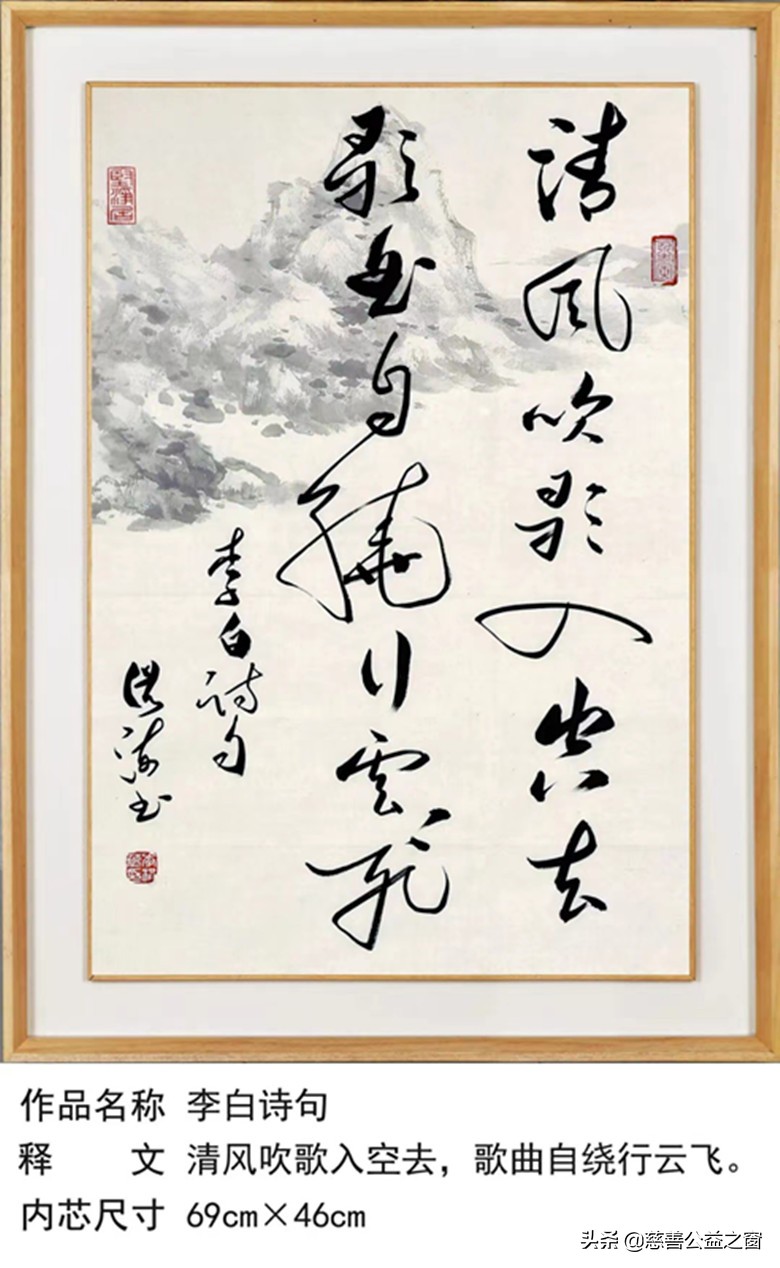 清风吹歌入空去
歌曲自绕行雲飛
李白诗句
洪海书
作品名称 李白诗句
释 文 清风吹歌入空去，歌曲自绕行云飞。
内芯尺寸 69cm×46cm
头条 @慈善公益之窗